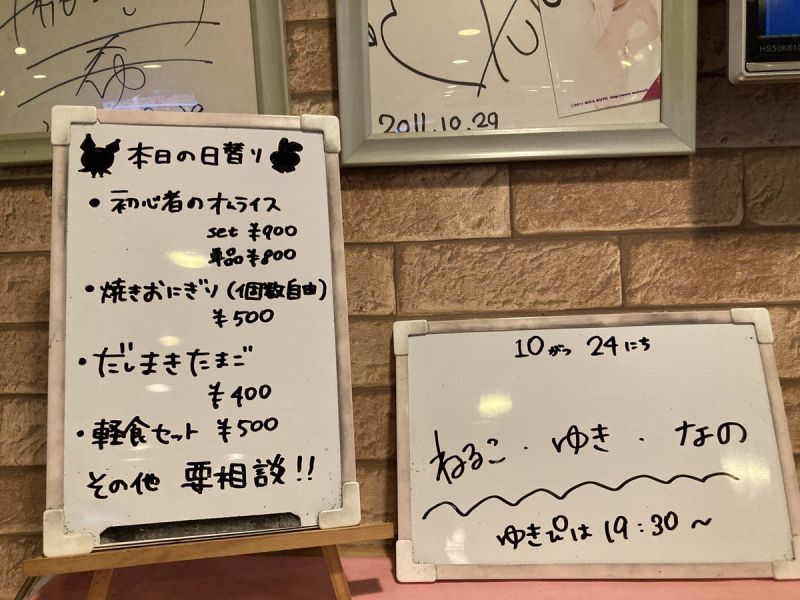 2011.10.29
©2011 MIKA MUTO
HS50K610
本日の日替り
・初心者のオムライス
set ¥900
単品¥800
・焼きおにぎり(個数自由)
¥500
・だしまきたまご
¥400
・軽食セット ¥500
その他 要相談!!
10がつ 24にち
ねるこ・ゆき・なの
ゆきぴは 19:30~